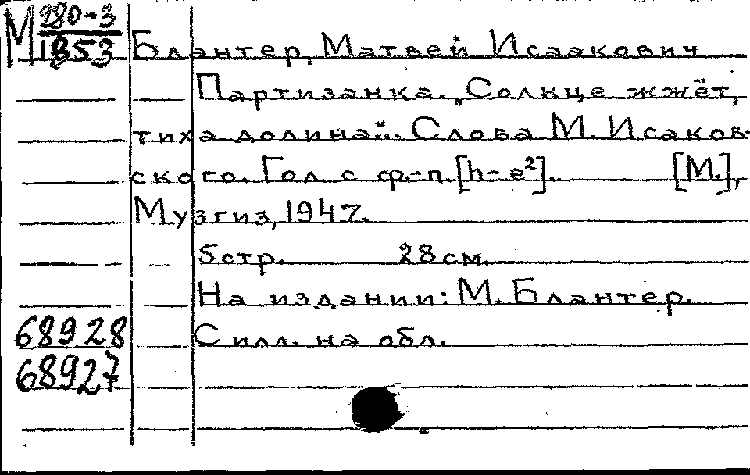 М 280-3
1853
Блантер, Матвей Исаакович
Партизанка. „Солнце жжёт,
тиха долина... Слова М. Исаков-
ского. Гол. с ф.-п. [h-e²]. [М.],
Музгиз, 1947.
5 стр. 28 см.
На издании: М. Блантер.
68928 С илл. на обл.
68927